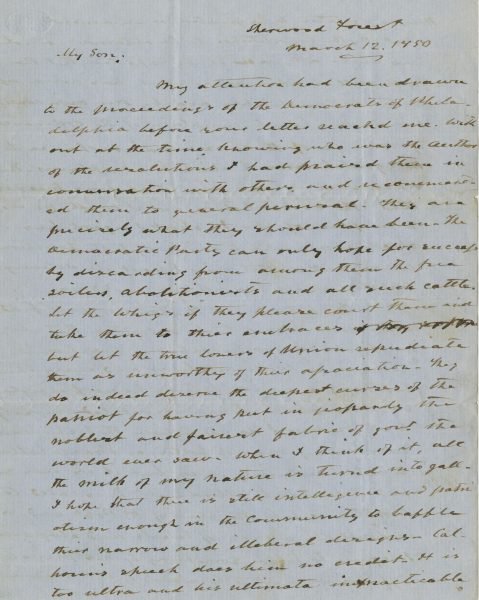 Sherwood Forest
March 12. 1850
My Son;
My attention had been drawn
to the proceedings of the Democrats of Phila-
delphia before your letter reach'd me. With
out at the time knowing who was the author
of the resolutions I had praised them in
conversation with others and recommend-
ed them to general perusal. They are
precisely what they should have been. The
Democratic Party can only hope for success
by discarding from among them the free
soilers, Abolitionists and all such cattle.
Let the Whigs if they please court them and
take them to their embraces
but let the true lovers of Union repudiate
them as unworthy of their association. They
do indeed deserve the deepest curses of the
patriot for having put in jeopardy the
noblest and fairest fabric of govt the
world ever saw. When I think of it, all
the milk of my nature is turned into gall.
I hope that there is still intelligence and patri
otism enough in the Community to baffle
their narrow and illiberal designs. Cal-
houn's speech does him no credit. It is
too ultra and his ultimata impracticable